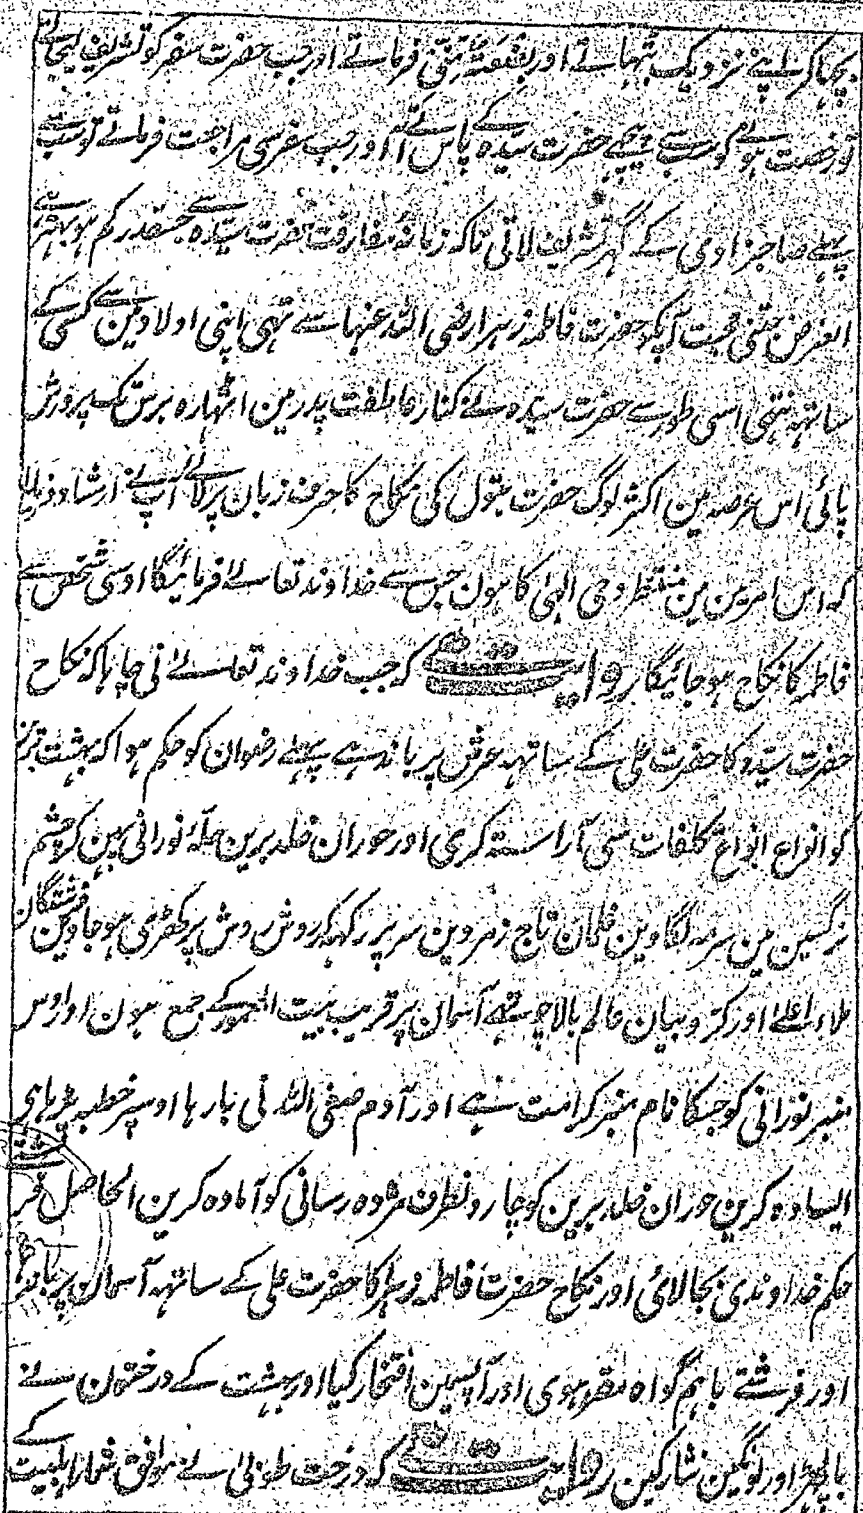 بچھا کر اپنے نزدیک بٹھاتے اور بضعۃ منّی فرماتے اور جب حضرت سفر کو تشریف لیجاتے
اور رخصت ہوتے تو سب سے پیچھے حضرت سیدہ کے پاس آتے اور جب سفر سی مراجعت فرماتے تو سب سے
پہلے صاحبزادی کے گہر تشریف لاتی تاکہ زمانۂ مفارقت حضرت سیدہ سے جسقدر کم ہو بہتر ہے
الغرض جتنی محبت آپکو حضرت فاطمہ زہرا رضی اللہ عنہا سے تہی اپنی اولاد مین سے کسی کے
ساتہہ نتہی اسی طور سے حضرت سیدہ نے کنار عاطفت پدر مین اٹہارہ برس تک پرورش
پائی اس عرصہ مین اکثر لوگ حضرت بتول کی نکاح کا حرف زبان پر لائے آپ نے ارشاد فرمایا
کہ اس امر مین مین منتظر وحی الہی کا ہون جس سے خداوند تعالے فرمائیگا اوسی شخص سے
فاطمہ کا نکاح ہو جائیگا روایت ہے کہ جب خداوند تعالے نی چاہا کہ نکاح
حضرت سیدہ کا حضرت علی کے ساتہہ عرش پر باندہے پہلے رضوان کو حکم ہوا کہ بہشت برین
کو انواع انواع تکلفات سی آراستہ کری اور حوران خلد برین حلۂ نورانی پہن کر چشم
نرگسین مین سرمہ لگاوین غلمان تاج زمردین سر پر رکہکر روش روش پر کھڑی ہو جاوین فرشتگان
ملاء اعلے اور کروبیان عالم بالا چوتھے آسمان پر قریب بیت المعمور کے جمع ہون اور اوس
منبر نورانی کو جسکا نام منبر کرامت ہے اور آدم صفی اللہ نی بارہا اوسپر خطبہ پڑہا ہی
ایستادہ کرین حوران خلد برین کو چارونطرف مژدہ رسانی کو آمادہ کرین الحاصل
حکم خداوندی بجا لائی اور نکاح حضرت فاطمہ زہرا کا حضرت علی کے ساتہہ آسمان پر باندہا
اور فرشتے باہم گواہ مقرر ہوی اور آپسمین افتخار کیا اور بہشت کے درختون نے
اور لونگین نثار کین روایت ہے کہ درخت طوبی نے موافق شمار اہلبیت کے